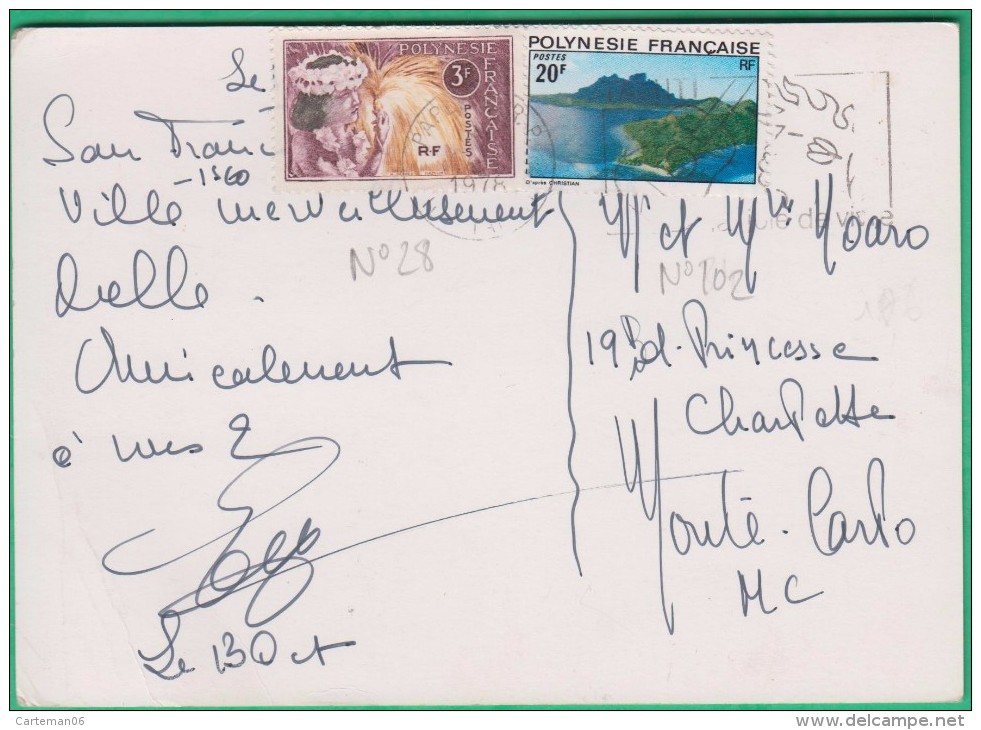 Le
San Fran
-1560
Ville merveilleusement
belle.
Amicalement
à vous 2
Le 13 Oct
POLYNESIE
FRANÇAISE
3F
POSTES
RF
1978
POLYNESIE FRANÇAISE
POSTES
20F
RF
D'après CHRISTIAN
N°28
N°102
M et Mme Moaro
19 Bd. Princesse
Charlotte
Monte-Carlo
MC
Carteman06
www.delcampe.net